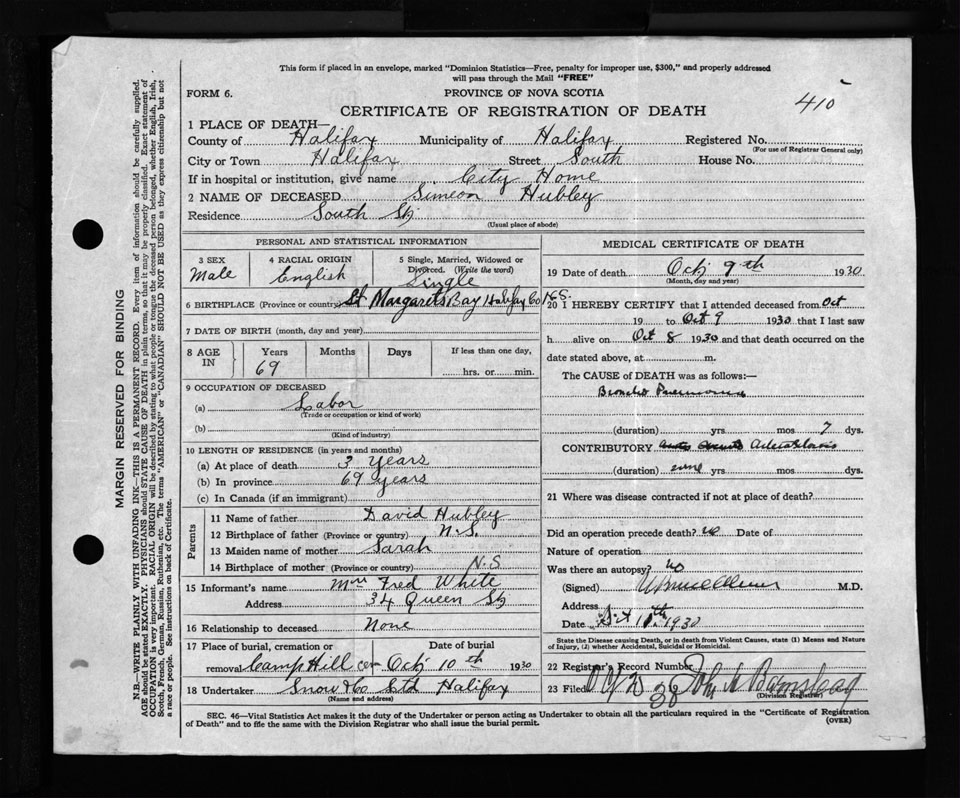 This form if placed in an envelope, marked "Dominion Statistics—Free, penalty for improper use, $300," and properly addressed
will pass through the Mail "FREE"
FORM 6.
PROVINCE OF NOVA SCOTIA
410
CERTIFICATE OF REGISTRATION OF DEATH
1 PLACE OF DEATH—
County of Halifax Municipality of Halifax Registered No.
(For use of Registrar General only)
City or Town Halifax Street South House No.
If in hospital or institution, give name City Home
2 NAME OF DECEASED Simeon Hubley
Residence South St.
(Usual place of abode)
PERSONAL AND STATISTICAL INFORMATION
3 SEX
Male
4 RACIAL ORIGIN
English
5 Single, Married, Widowed or
Divorced. (Write the word)
Single
6 BIRTHPLACE (Province or country) St Margarets Bay Halifax Co N.S.
7 DATE OF BIRTH (month, day and year)
8 AGE
IN
Years Months Days If less than one day,
69
hrs. or min.
9 OCCUPATION OF DECEASED
(a) Labor
(Trade or occupation or kind of work)
(b)
(Kind of industry)
10 LENGTH OF RESIDENCE (in years and months)
(a) At place of death 3 Years
(b) In province 69 years
(c) In Canada (if an immigrant)
Parents
11 Name of father David Hubley
12 Birthplace of father (Province or country) N.S.
13 Maiden name of mother Sarah
14 Birthplace of mother (Province or country) N.S
15 Informant's name Mrs Fred White
Address 34 Queen St
16 Relationship to deceased None
17 Place of burial, cremation or Date of burial
removal Camp Hill cem Oct 10th 1930
18 Undertaker Snow & Co Ltd Halifax
(Name and address)
MEDICAL CERTIFICATE OF DEATH
19 Date of death Oct 9th 1930
(Month, day and year)
20 I HEREBY CERTIFY that I attended deceased from Oct
19 to Oct 9 1930 that I last saw
h alive on Oct 8 1930 and that death occurred on the
date stated above, at m.
The CAUSE of DEATH was as follows:—
Broncho Pneumonia
(duration) yrs mos 7 dys.
CONTRIBUTORY
(duration) yrs mos dys.
21 Where was disease contracted if not at place of death?
Did an operation precede death? no Date of
Nature of operation
Was there an autopsy? no
(Signed) M.D.
Address
Date 1930
State the Disease causing Death, or in death from Violent Causes, state (1) Means and Nature
of Injury, (2) whether Accidental, Suicidal or Homicidal.
22 Registrar's Record Number
23 Filed
(Division Registrar)
SEC. 46—Vital Statistics Act makes it the duty of the Undertaker or person acting as Undertaker to obtain all the particulars required in the "Certificate of Registration
of Death" and to file the same with the Division Registrar who shall issue the burial permit. (OVER)
MARGIN RESERVED FOR BINDING
N.B.—WRITE PLAINLY WITH UNFADING INK—THIS IS A PERMANENT RECORD. Every item of information should be carefully supplied.
AGE should be stated EXACTLY. PHYSICIANS should STATE CAUSE OF DEATH in plain terms, so that it may be properly classified. Exact statement of
OCCUPATION is very important. RACIAL ORIGIN will be described by stating to what people or tongue the deceased person belonged, whether English, Irish,
Scotch, French, German, Russian, Ruthenian, etc. The terms "AMERICAN" or "CANADIAN" SHOULD NOT BE USED as they express citizenship but not
a race or people. See instructions on back of Certificate.